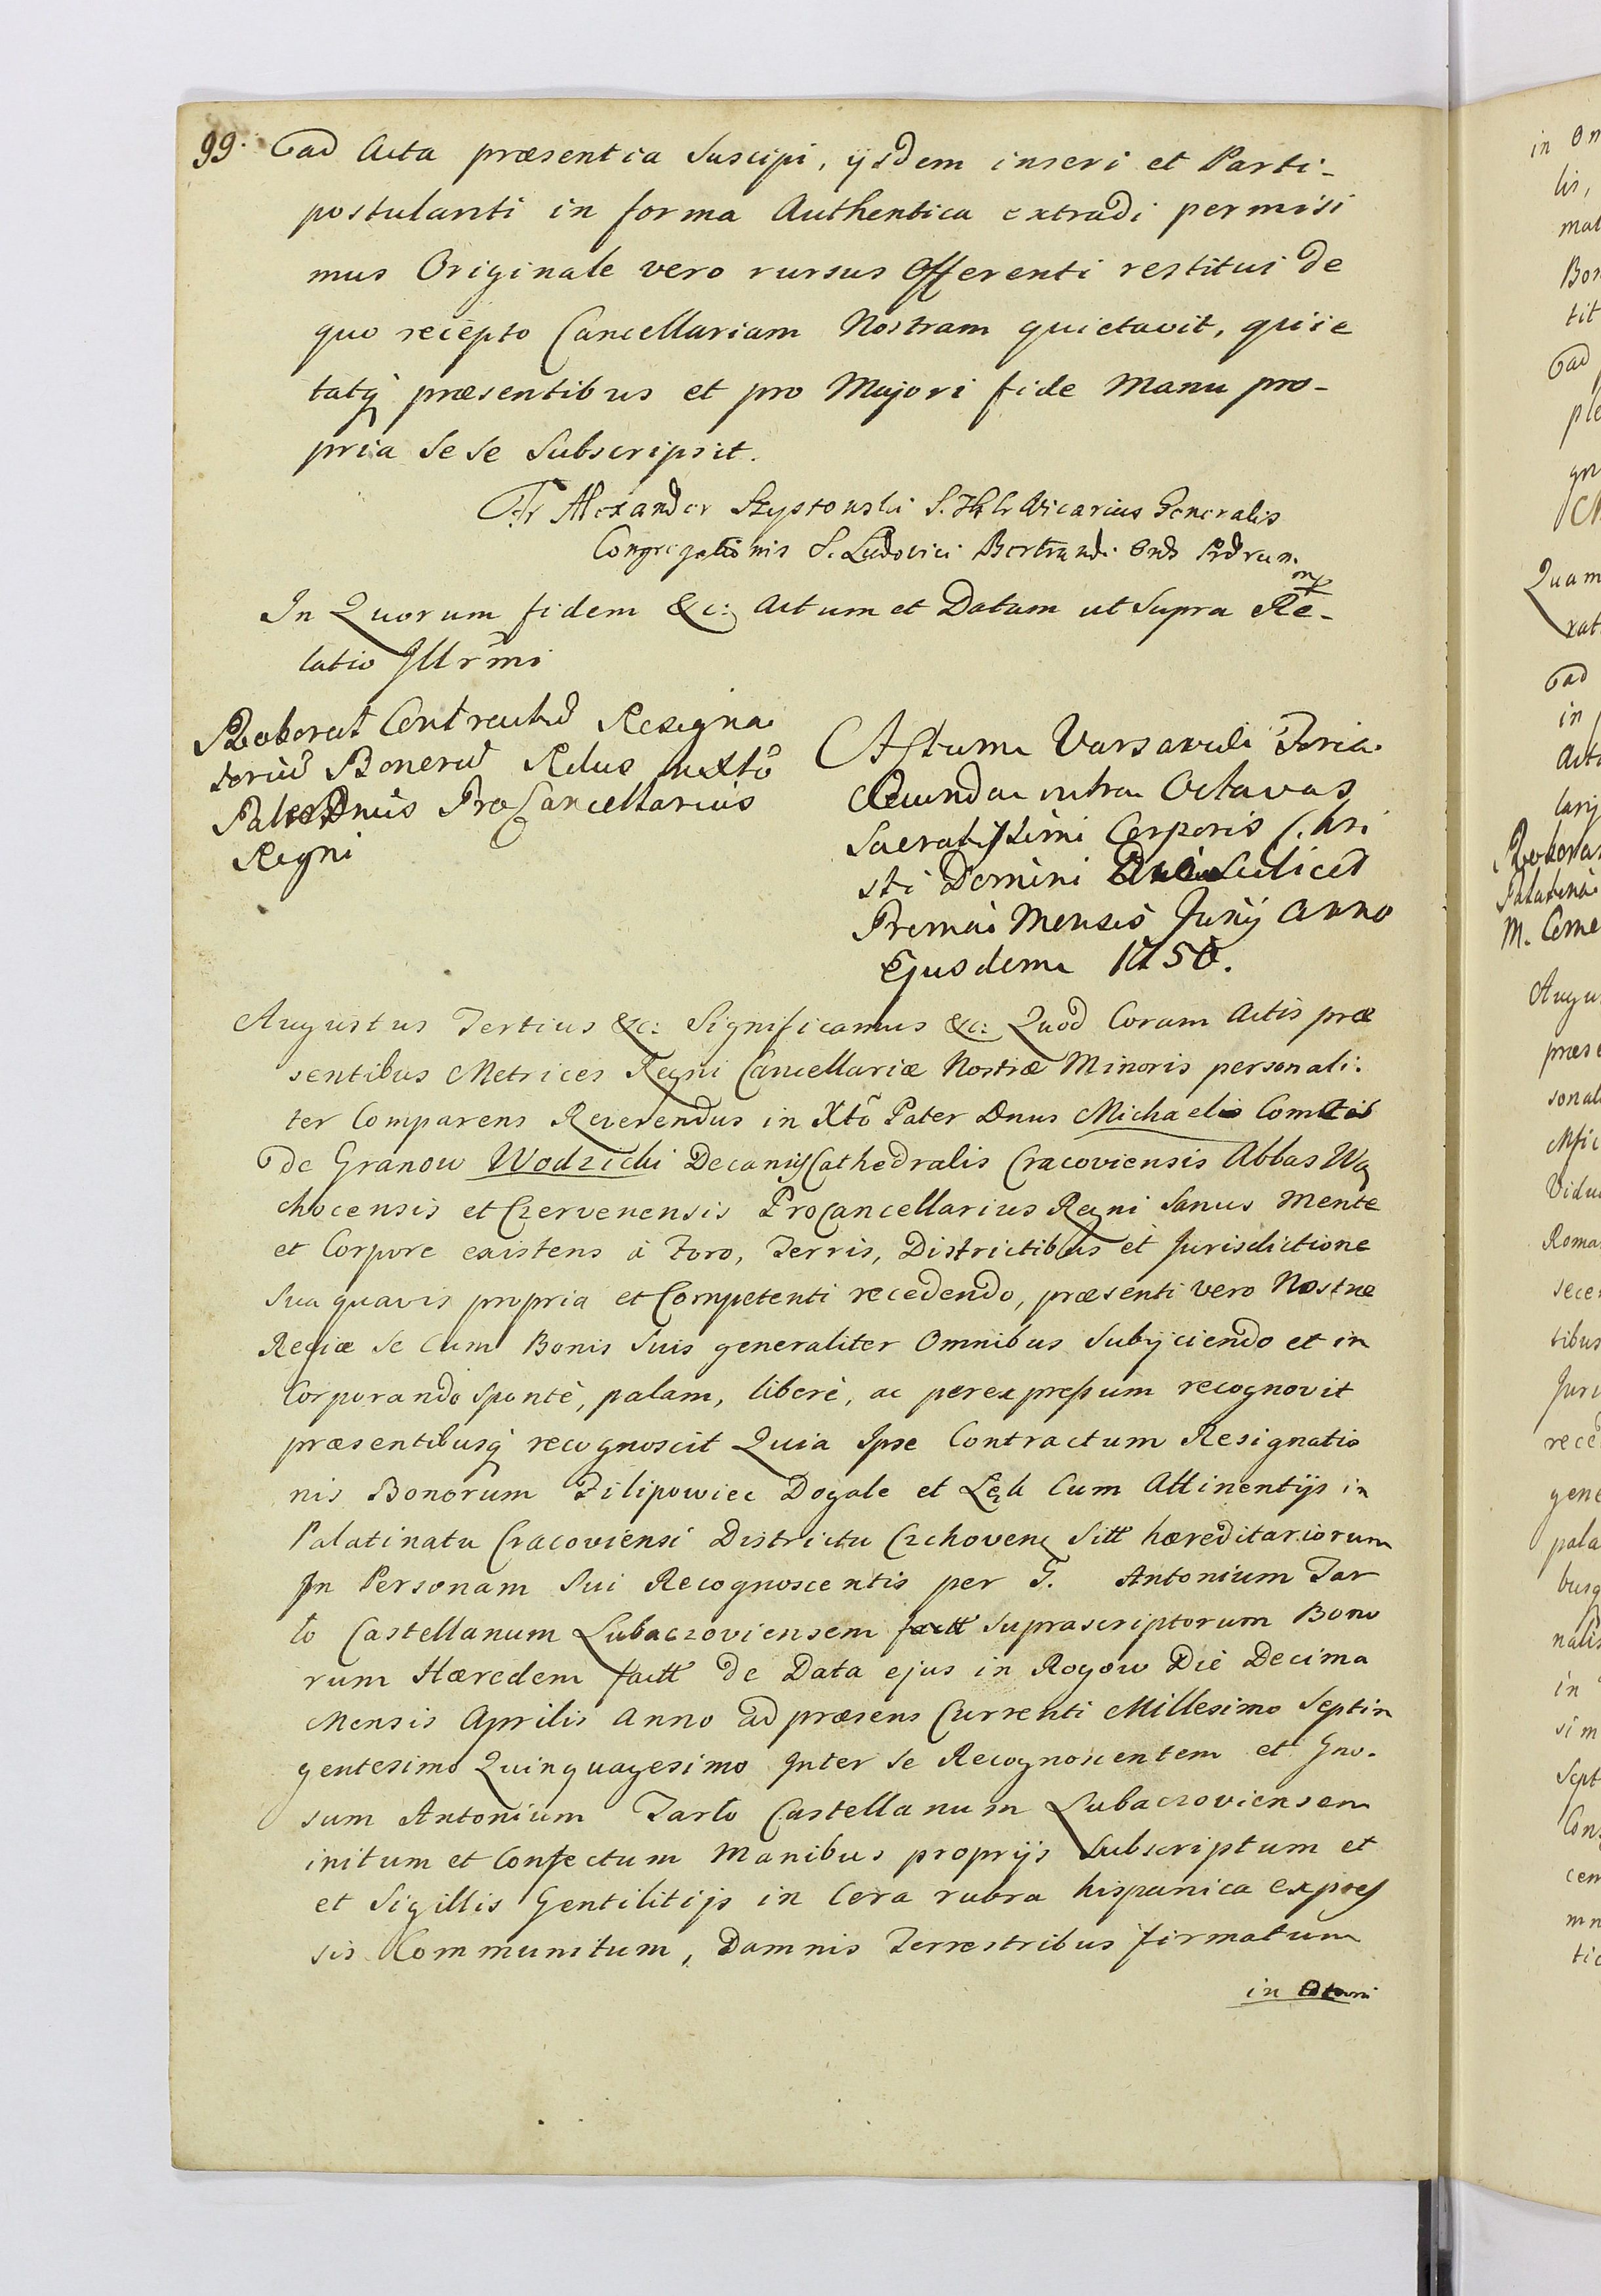 99. ad Acta præsentia Suscipi, ijsdem inseri et Parti-
postulanti in forma Authentica extradi permisi
mus Originale vero rursus Offerenti restitui de
quo recepto Cancellariam Nostram quietavit, quie
tatq præsentibus et pro Majori fide Manu pro-
pria Se Se Subscripsit.
Fr Alexander Vicarius Generalis
Congregationis S. Ludovici Bertrandi Ord
In Quorum fidem &c: Actum et Datum ut Supra Re-
latio Illrmi
Roborat Contractus Resigna
torius Bonorū Rdus in Xto
Pater Dnus ProCancellarius
Regni
Actum Varsaviæ Feria
Secunda intra Octavas
Sacratissimi Corporis Chri
sti Domini Die Scilicet
Prima Mensis Junij Anno
Ejusdem 1750.
Augustus Tertius &c: Significamus &c: Quod Coram Actis præ
sentibus Metrices Regni Cancellariæ Nostræ Minoris personali.
ter Comparens Reverendus in Xto Pater Dnus Michaelis Comitis
de Granow Wodzicki Decanus Cathedralis Cracoviensis Abbas Wą
chocensis et Czervenensis ProCancellarius Regni Sanus Mente
et Corpore existens à Foro, Terris, Districtibus et Jurisdictione
Sua quavis propria et Competenti recedendo, præsenti vero Nostræ
Regiæ Se Cum Bonis Suis generaliter Omnibus Subijciendo et in
Corporando Spontè, palam, liberè, ac per expressum recognovit
præsentibusq recognoscit Quia Ipse Contractum Resignatio
nis Bonorum Filipowiec Dogale et Cum Attinentijs in
Palatinatu Cracoviensi Districtu Czchoven Sitt hæreditariorum
In Personam Sui Recognoscentis per G. Antonium Tar
ło Castellanum Lubaczoviensem factt Suprascriptorum Bono
rum Hæredem factt de Data ejus in Rogow Die Decima
Mensis Aprilis Anno ad præsens Currenti Millesimo Septin
gentesimo Quinquagesimo Inter Se Recognoscentem et Gno.
sum Antonium Tarło Castellanum Lubaczoviensem
initum et Confectum Manibus proprijs Subscriptum et
et Sigillis Gentilitijs in Cera rubra hispanica expres
sis Communitum, Damnis Terrestribus firmatum
in